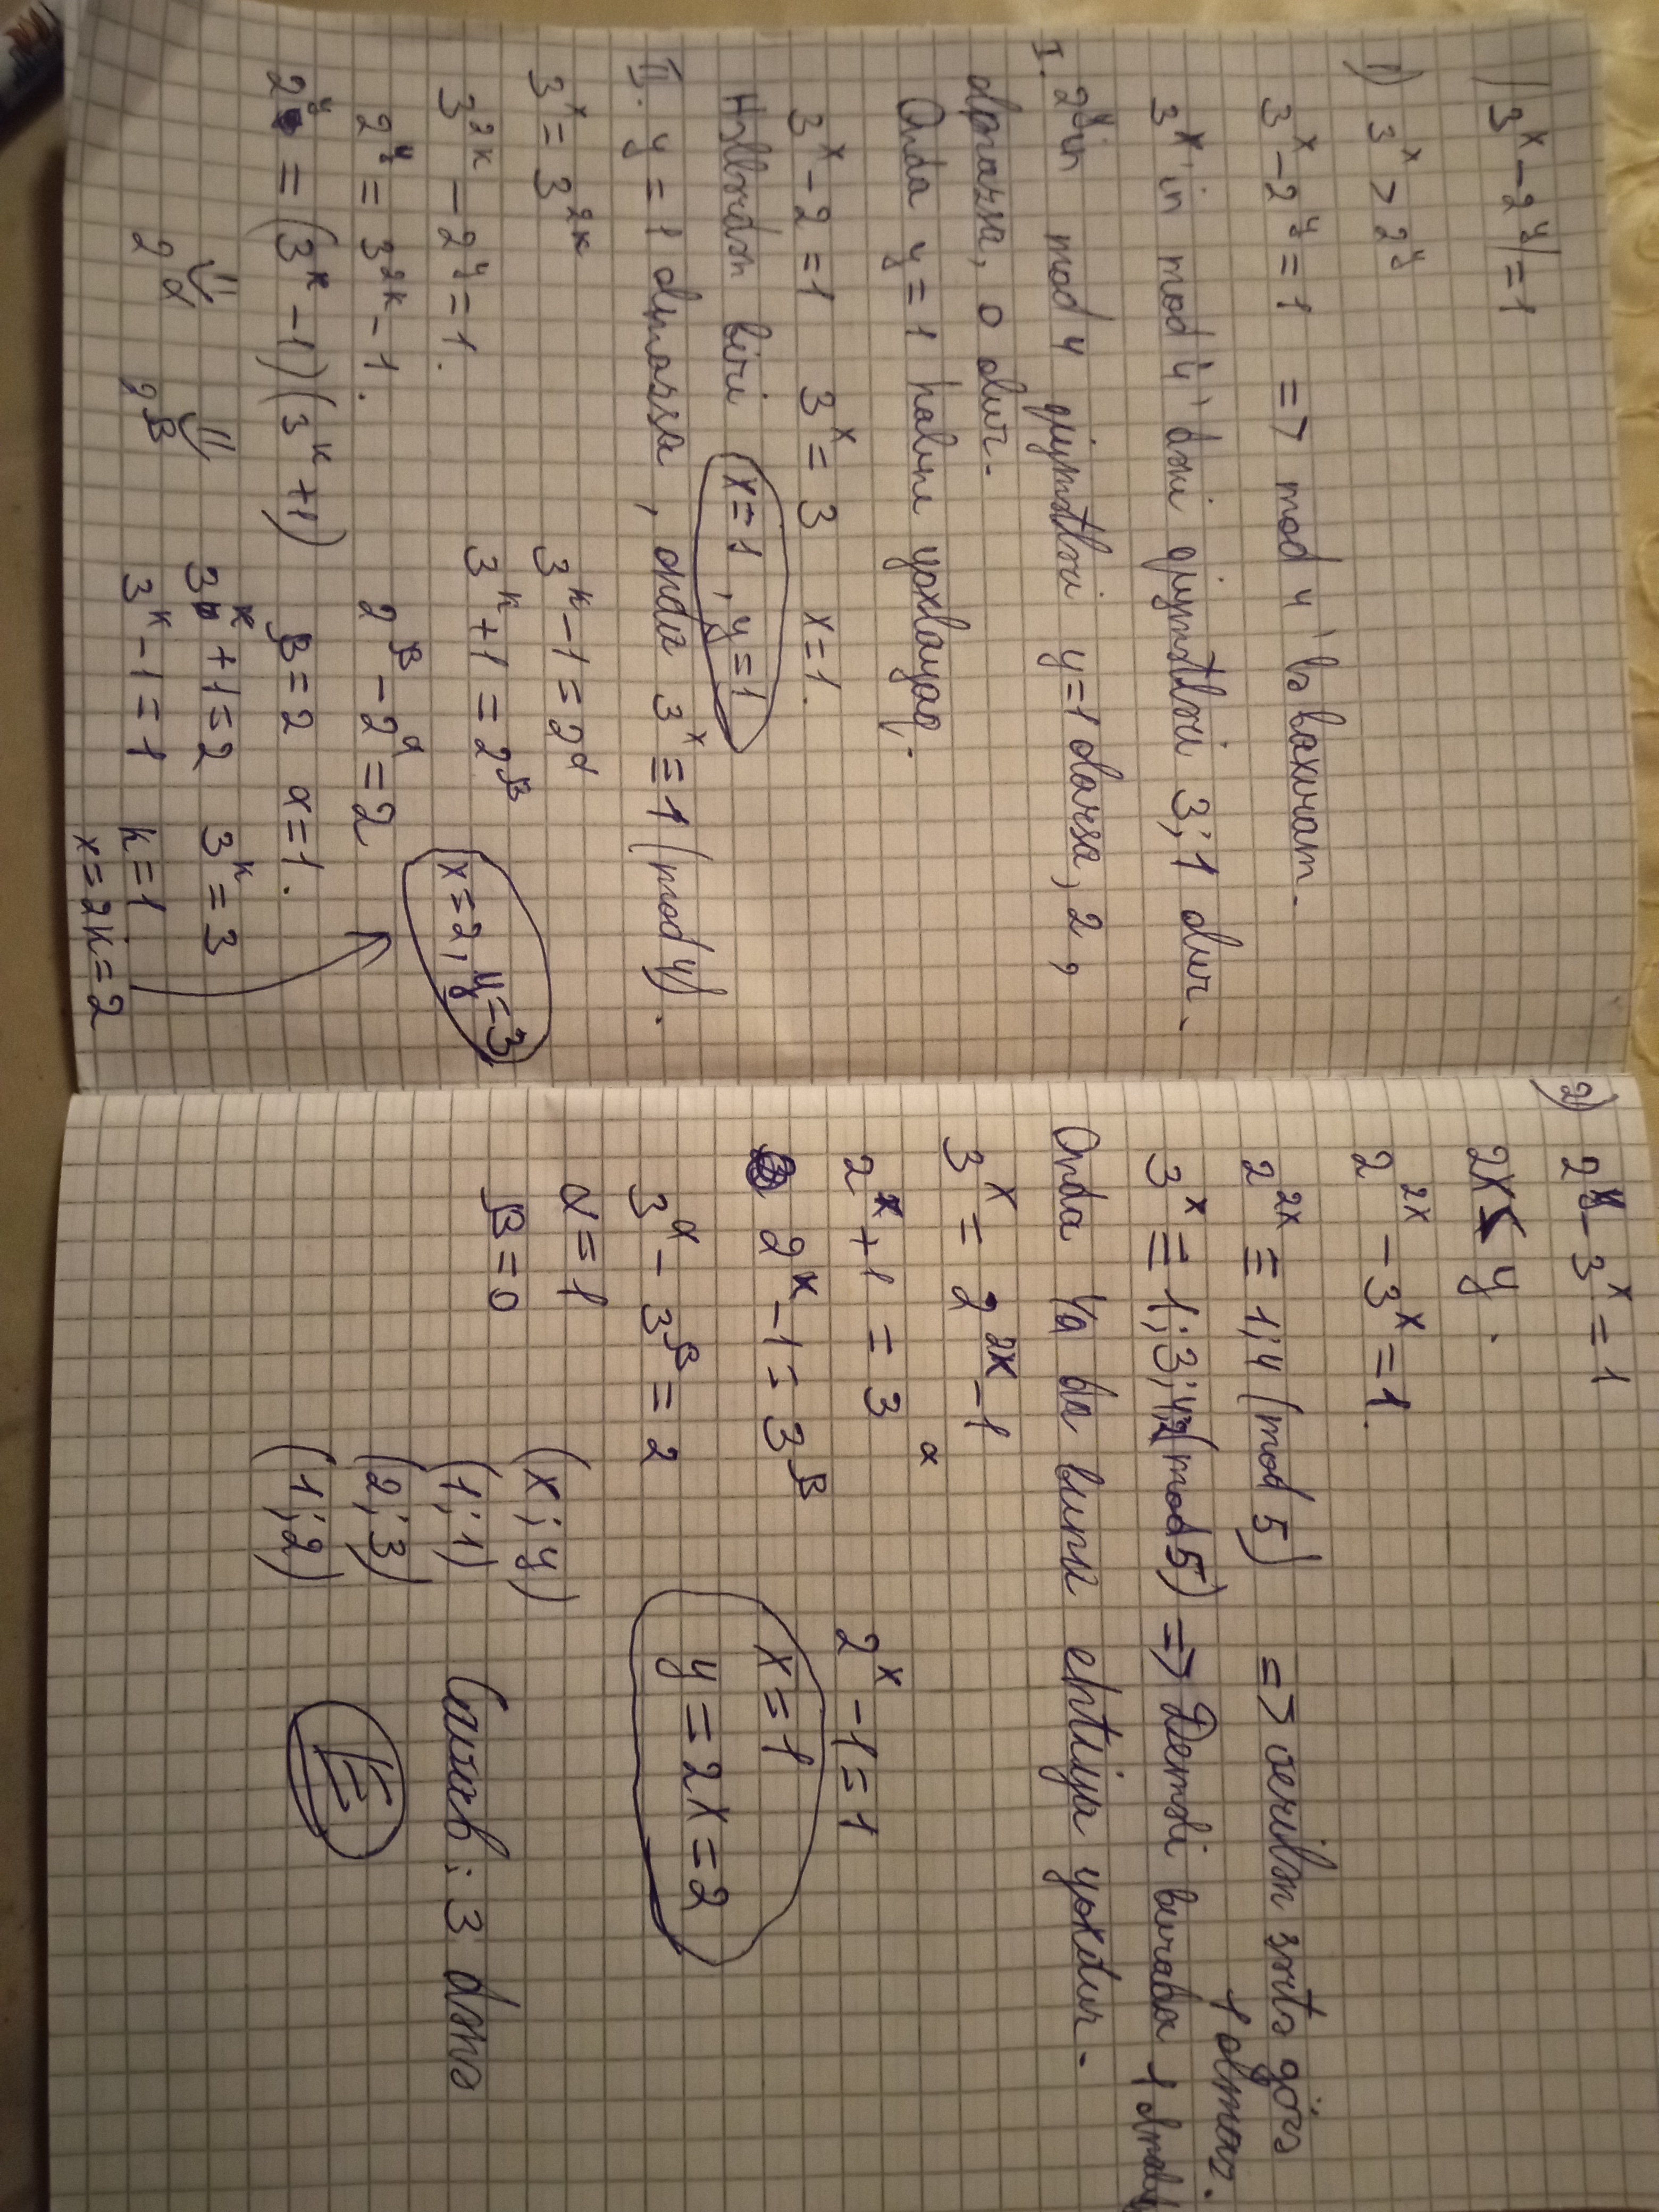 |3^x - 2^y| = 1
1) 3^x > 2^y
3^x - 2^y = 1 => mod 4'ə baxıram.
3^x'in mod 4'dəki qiymətləri 3; 1 olur.
I. 2^y'in mod 4 qiymətləri y=1 olarsa, 2,
olmazsa, 0 olur.
Onda y = 1 halını yoxlayaq.
3^x - 2 = 1 3^x = 3 x = 1.
Həllərdən biri x = 1, y = 1
II. y = 1 olmazsa, onda 3^x ≡ 1 (mod 4).
3^x = 3^2k
3^2k - 2^y = 1.
2^y = 3^2k - 1.
2^y = (3^k - 1)(3^k + 1)
2^α 2^β
3^k - 1 = 2^α
3^k + 1 = 2^β
2^β - 2^α = 2
β = 2 α = 1.
3^k + 1 = 2 3^k = 3
3^k - 1 = 1 k = 1
x = 2k = 2
x = 2, y = 3
2) 2^y - 3^x = 1
2x ≤ y.
2^2x - 3^x = 1.
2^2x ≡ 1; 4 (mod 5) => verilən şərtə görə
1 olmaz.
3^x ≡ 1; 3; 4; 2 (mod 5) => Deməli burada 1
Onda ya da buna ehtiyac yoxdur.
3^x = 2^2x - 1
2^x + 1 = 3^α
2^x - 1 = 3^β
3^α - 3^β = 2
α = 1
β = 0
2^x - 1 = 1
x = 1
y = 2x = 2
(x; y)
(1; 1)
(2; 3)
(1; 2)
Cavab: 3 dənə
E